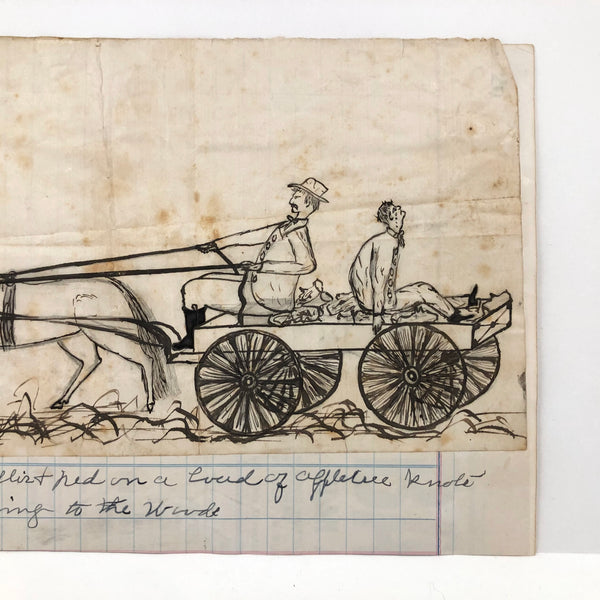 on a load of appletree Knots
ing to the Woods